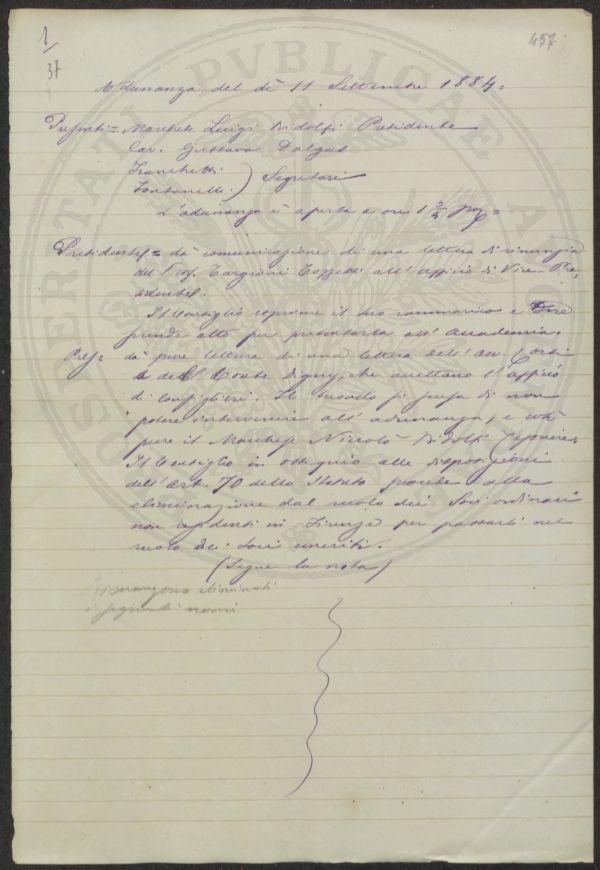 1
37
457
Adunanza del dì 11 Settembre 1884=
Presenti= Marchese Luigi Ridolfi Presidente
Cav. Gustavo Dalgas
Franchetti
Fontanelli ) Segretari
L'adunanza è aperta a ore 1 3/4 pom=
Presidente= dà comunicazione di una lettera di rinunzia
del Prof. Targioni Tozzetti all'ufficio di Vice-Pre-
sidente.
Il Consiglio esprime il suo rammarico e
prende atto per presentarla all'Accademia.
Pres= dà pure lettura di una lettera dell'Avv.
e del Conte Digny, che accettano l'ufficio
di consiglieri. Il secondo si scusa di non
potere intervenire all'adunanza, e così
pure il Marchese Niccolò Ridolfi
Il Consiglio in ossequio alle disposizioni
dell'Art. 70 dello Statuto procede alla
eliminazione dal ruolo dei Soci ordinari
non residenti in Firenze per passarli nel
ruolo dei Soci emeriti.
(Segue la nota)
Rimangono eliminati
i seguenti nomi
SPERITATI PVBLICAE